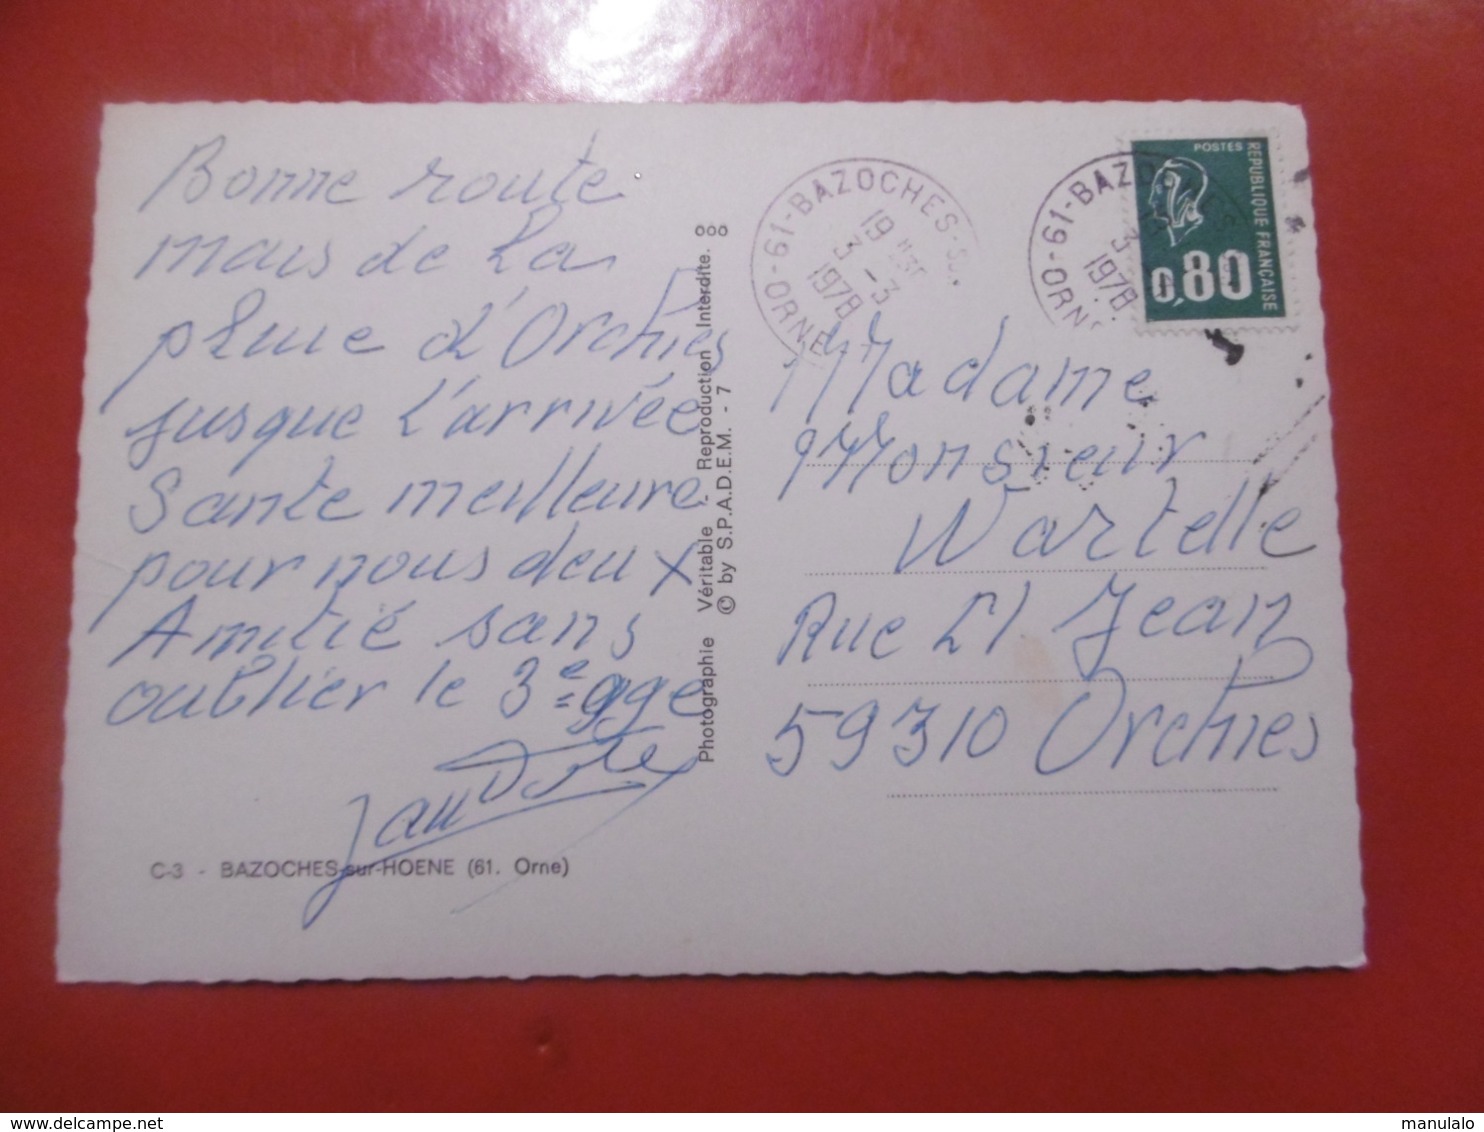 Bonne route
mais de la
pluie d'Orchies
jusque l'arrivée
Sante meilleure
pour nous deux
Amitié sans
oublier le 3e age
C-3 - BAZOCHES-sur-HOENE (61. Orne)
Photographie Véritable - Reproduction Interdite.
© by S.P.A.D.E.M. - 7
61-BAZOCHES-SUR-
19 H30
3 -3
1978
ORNE
61-BAZOCHES
3
1978
ORNE
POSTES
REPUBLIQUE FRANÇAISE
0,80
Madame
Monsieur
Wartelle
Rue St Jean
59310 Orchies
www.delcampe.net
manulalo